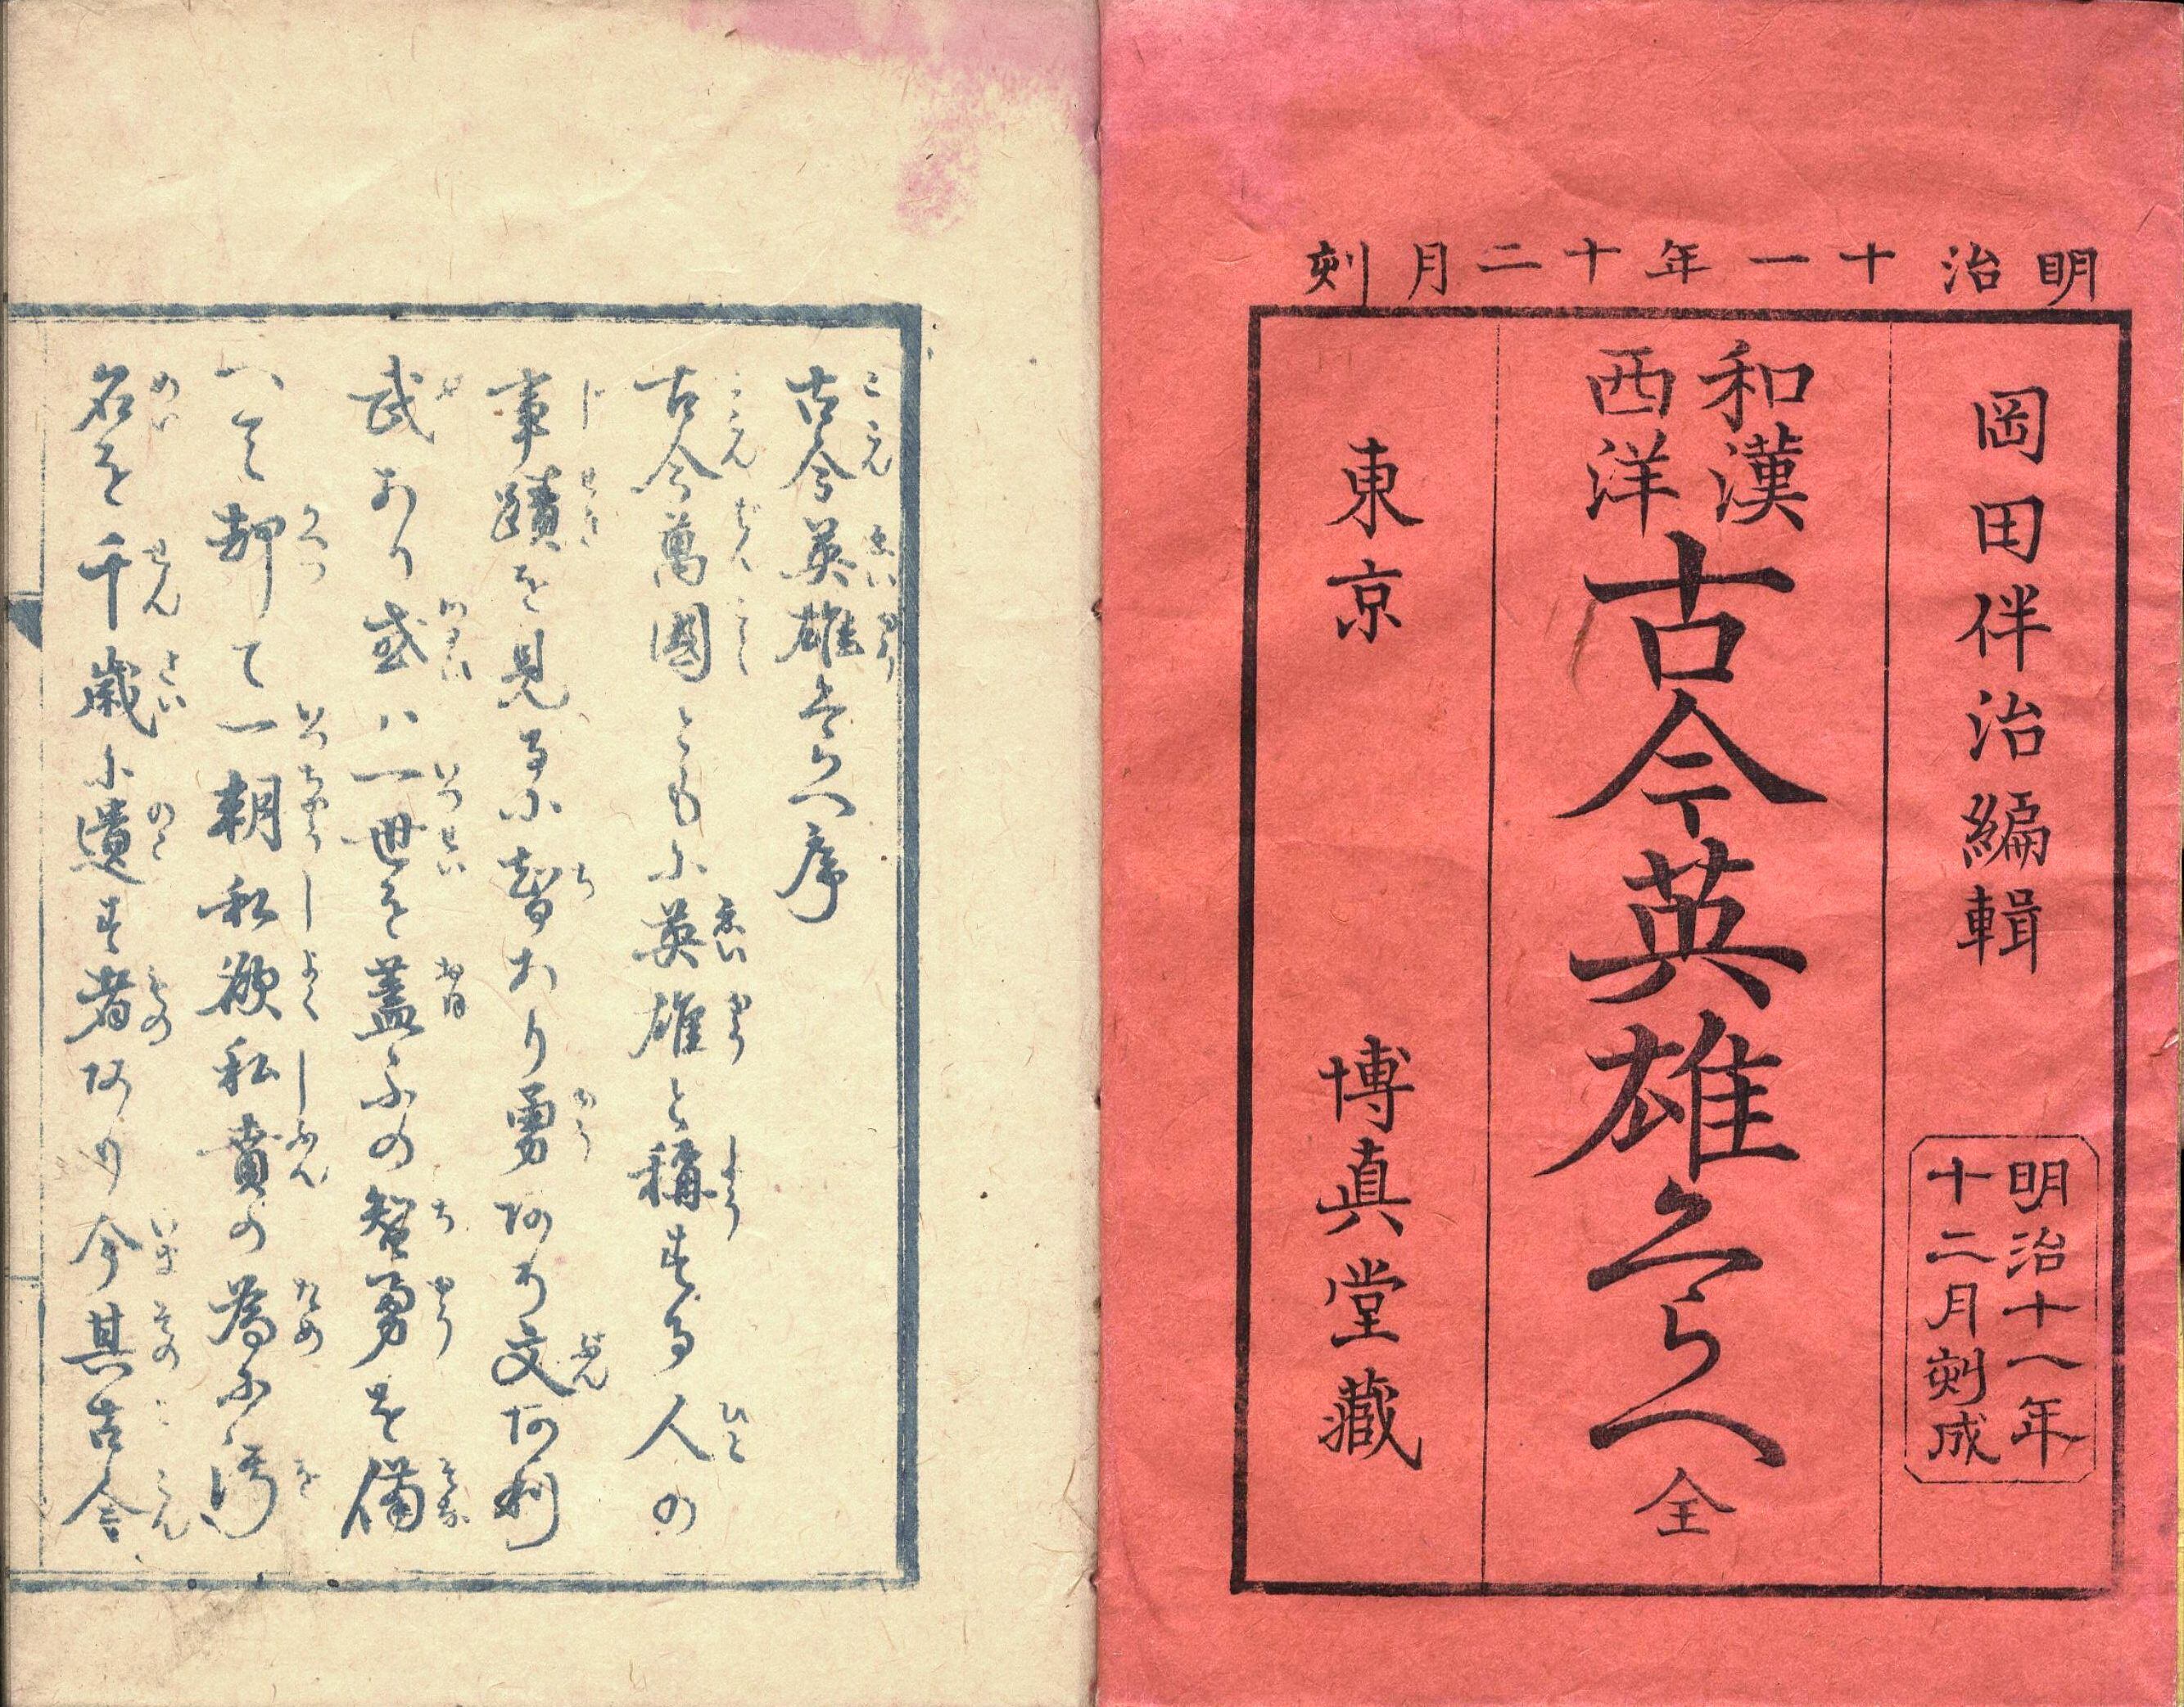 明治十一年十二月刻
岡田伴治編輯
明治十八年
十二月刻成
和漢
西洋
古今英雄くらへ 全
東京 博真堂藏
古今英雄くらへ序
古今萬國ともに英雄と稱する人の
事蹟を見るに智あり勇あり文あり
武あり或ハ一世を蓋ふの智勇を備
へて却て一朝私欲私賁の為に汚
名を千歳に遺す者あり今其古今